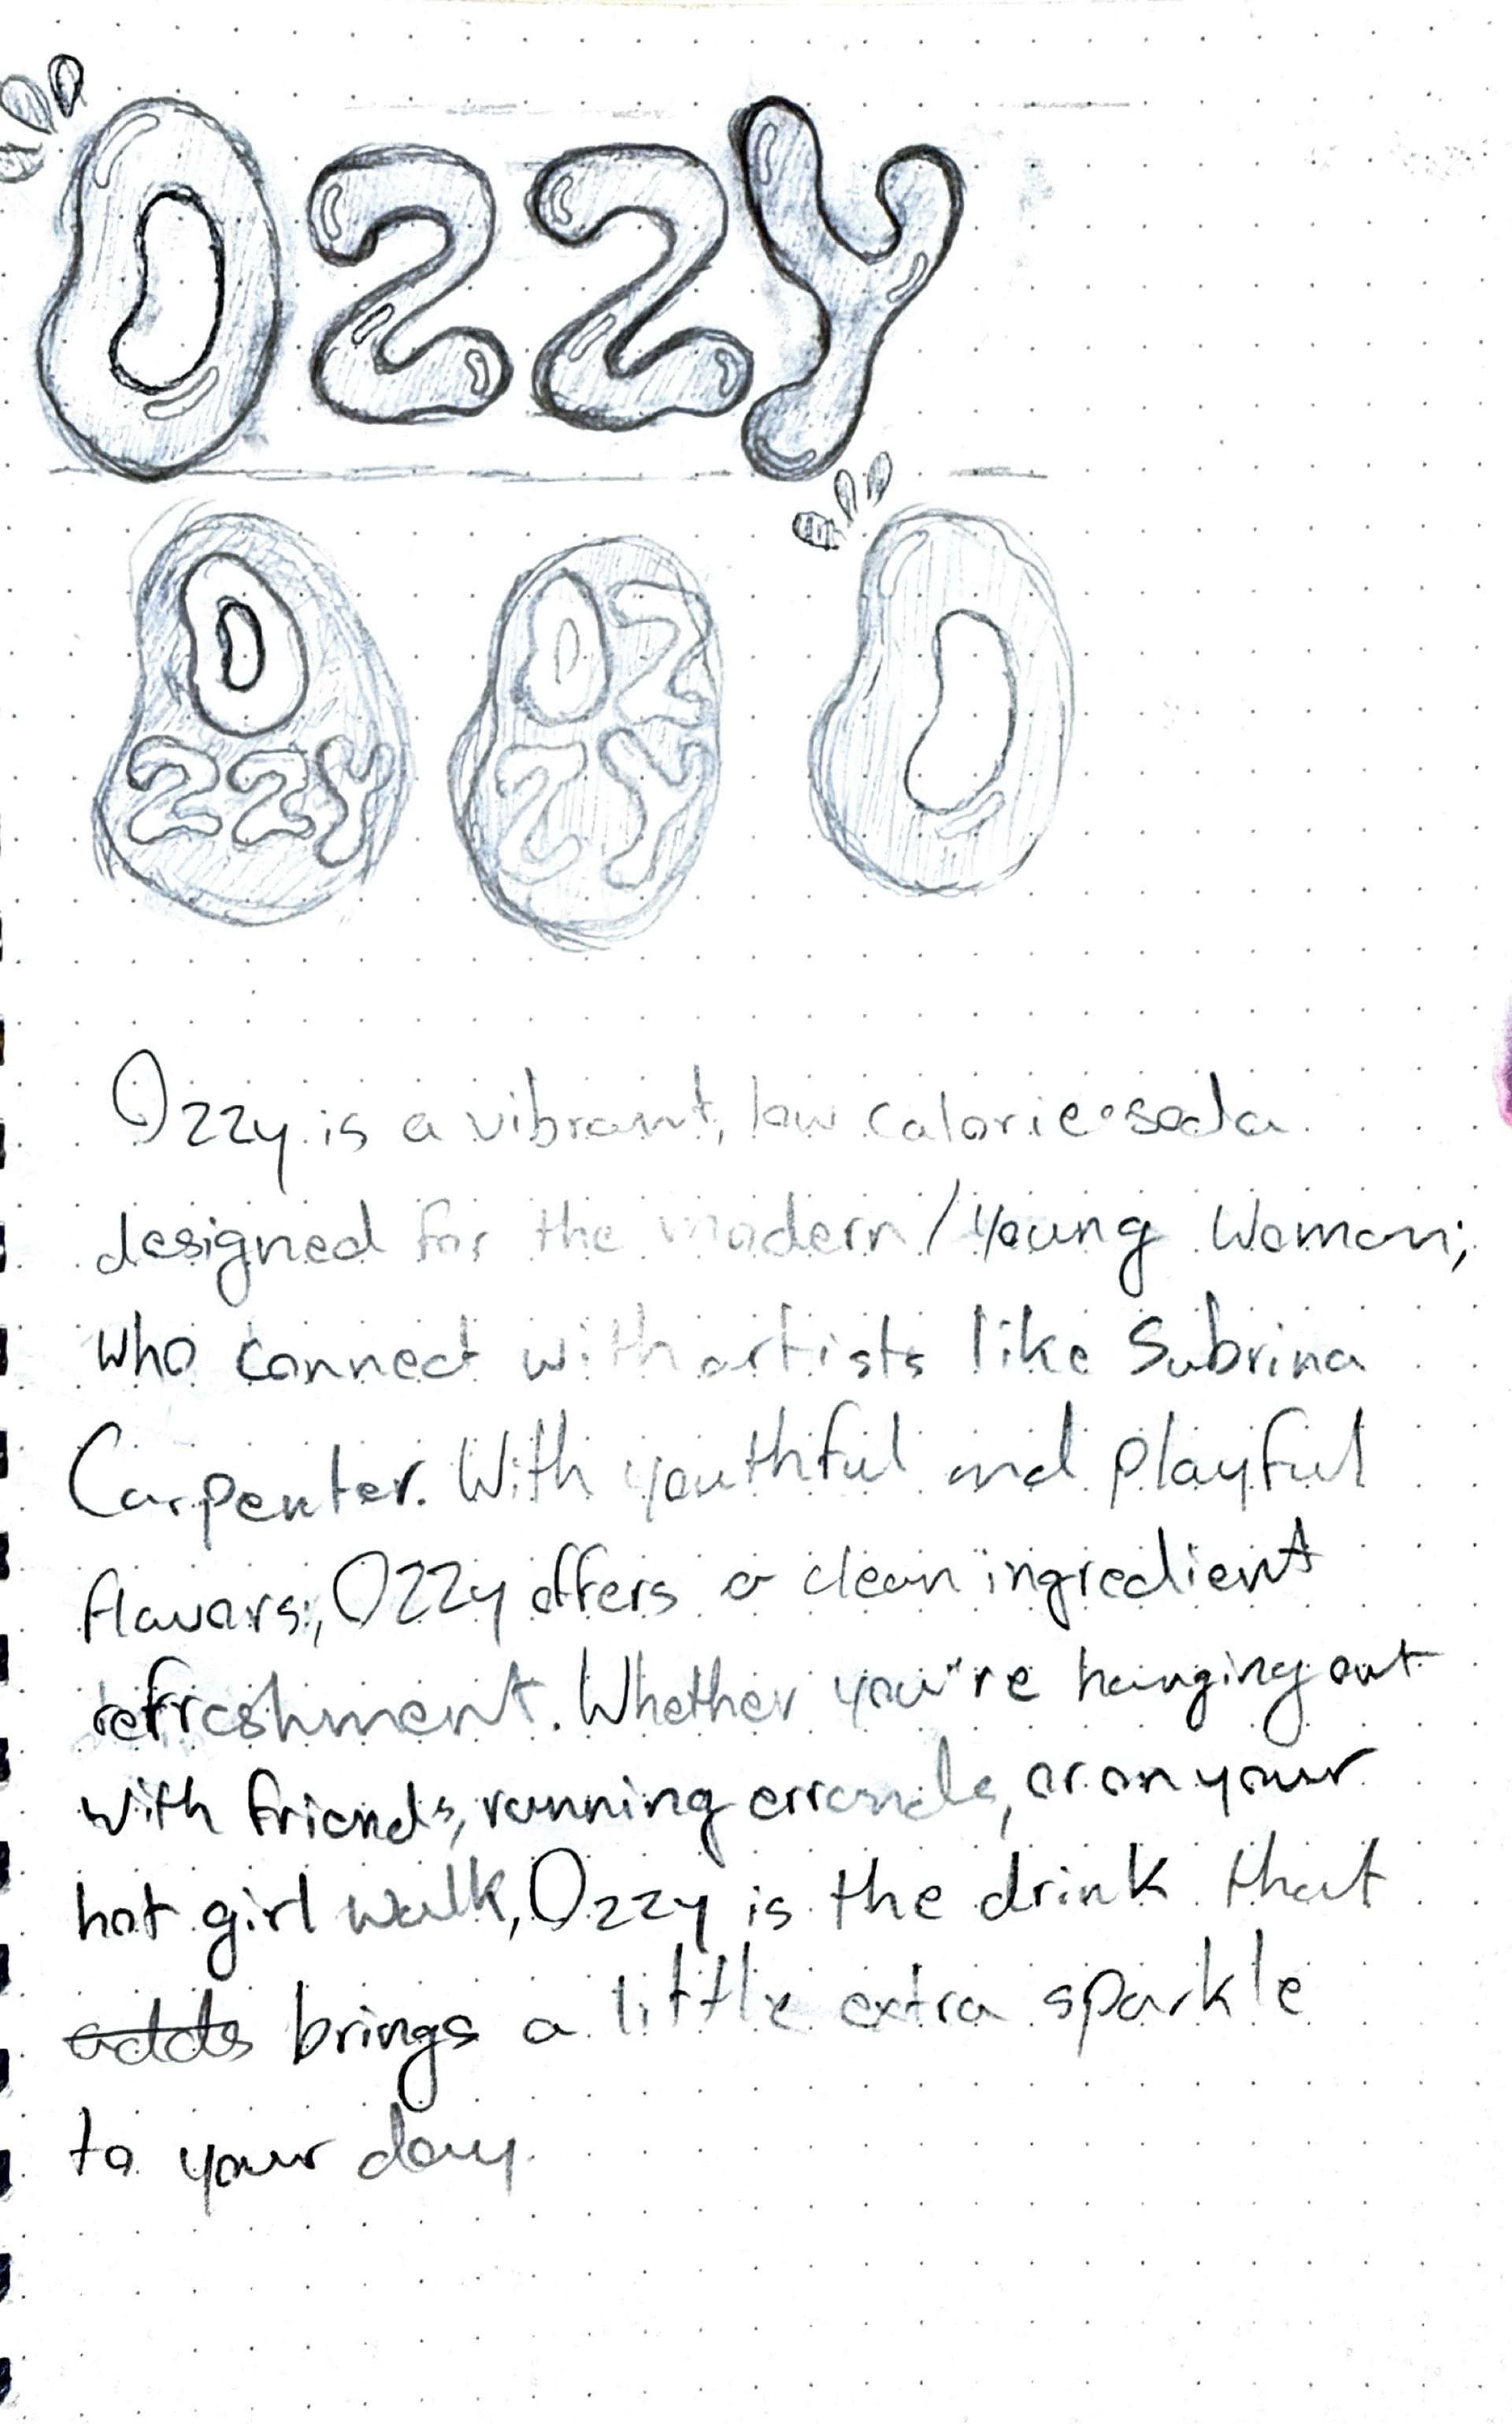 OZZY
O
ZZY
OZ
ZY
O
Ozzy is a vibrant, low calorie soda
designed for the modern / young woman;
who connect with artists like Sabrina
Carpenter. With youthful and playful
flavors, Ozzy offers a clean ingredient
refreshment. Whether you're hanging out
with friends, running errands, or on your
hot girl walk, Ozzy is the drink that
adds brings a little extra sparkle
to your day.